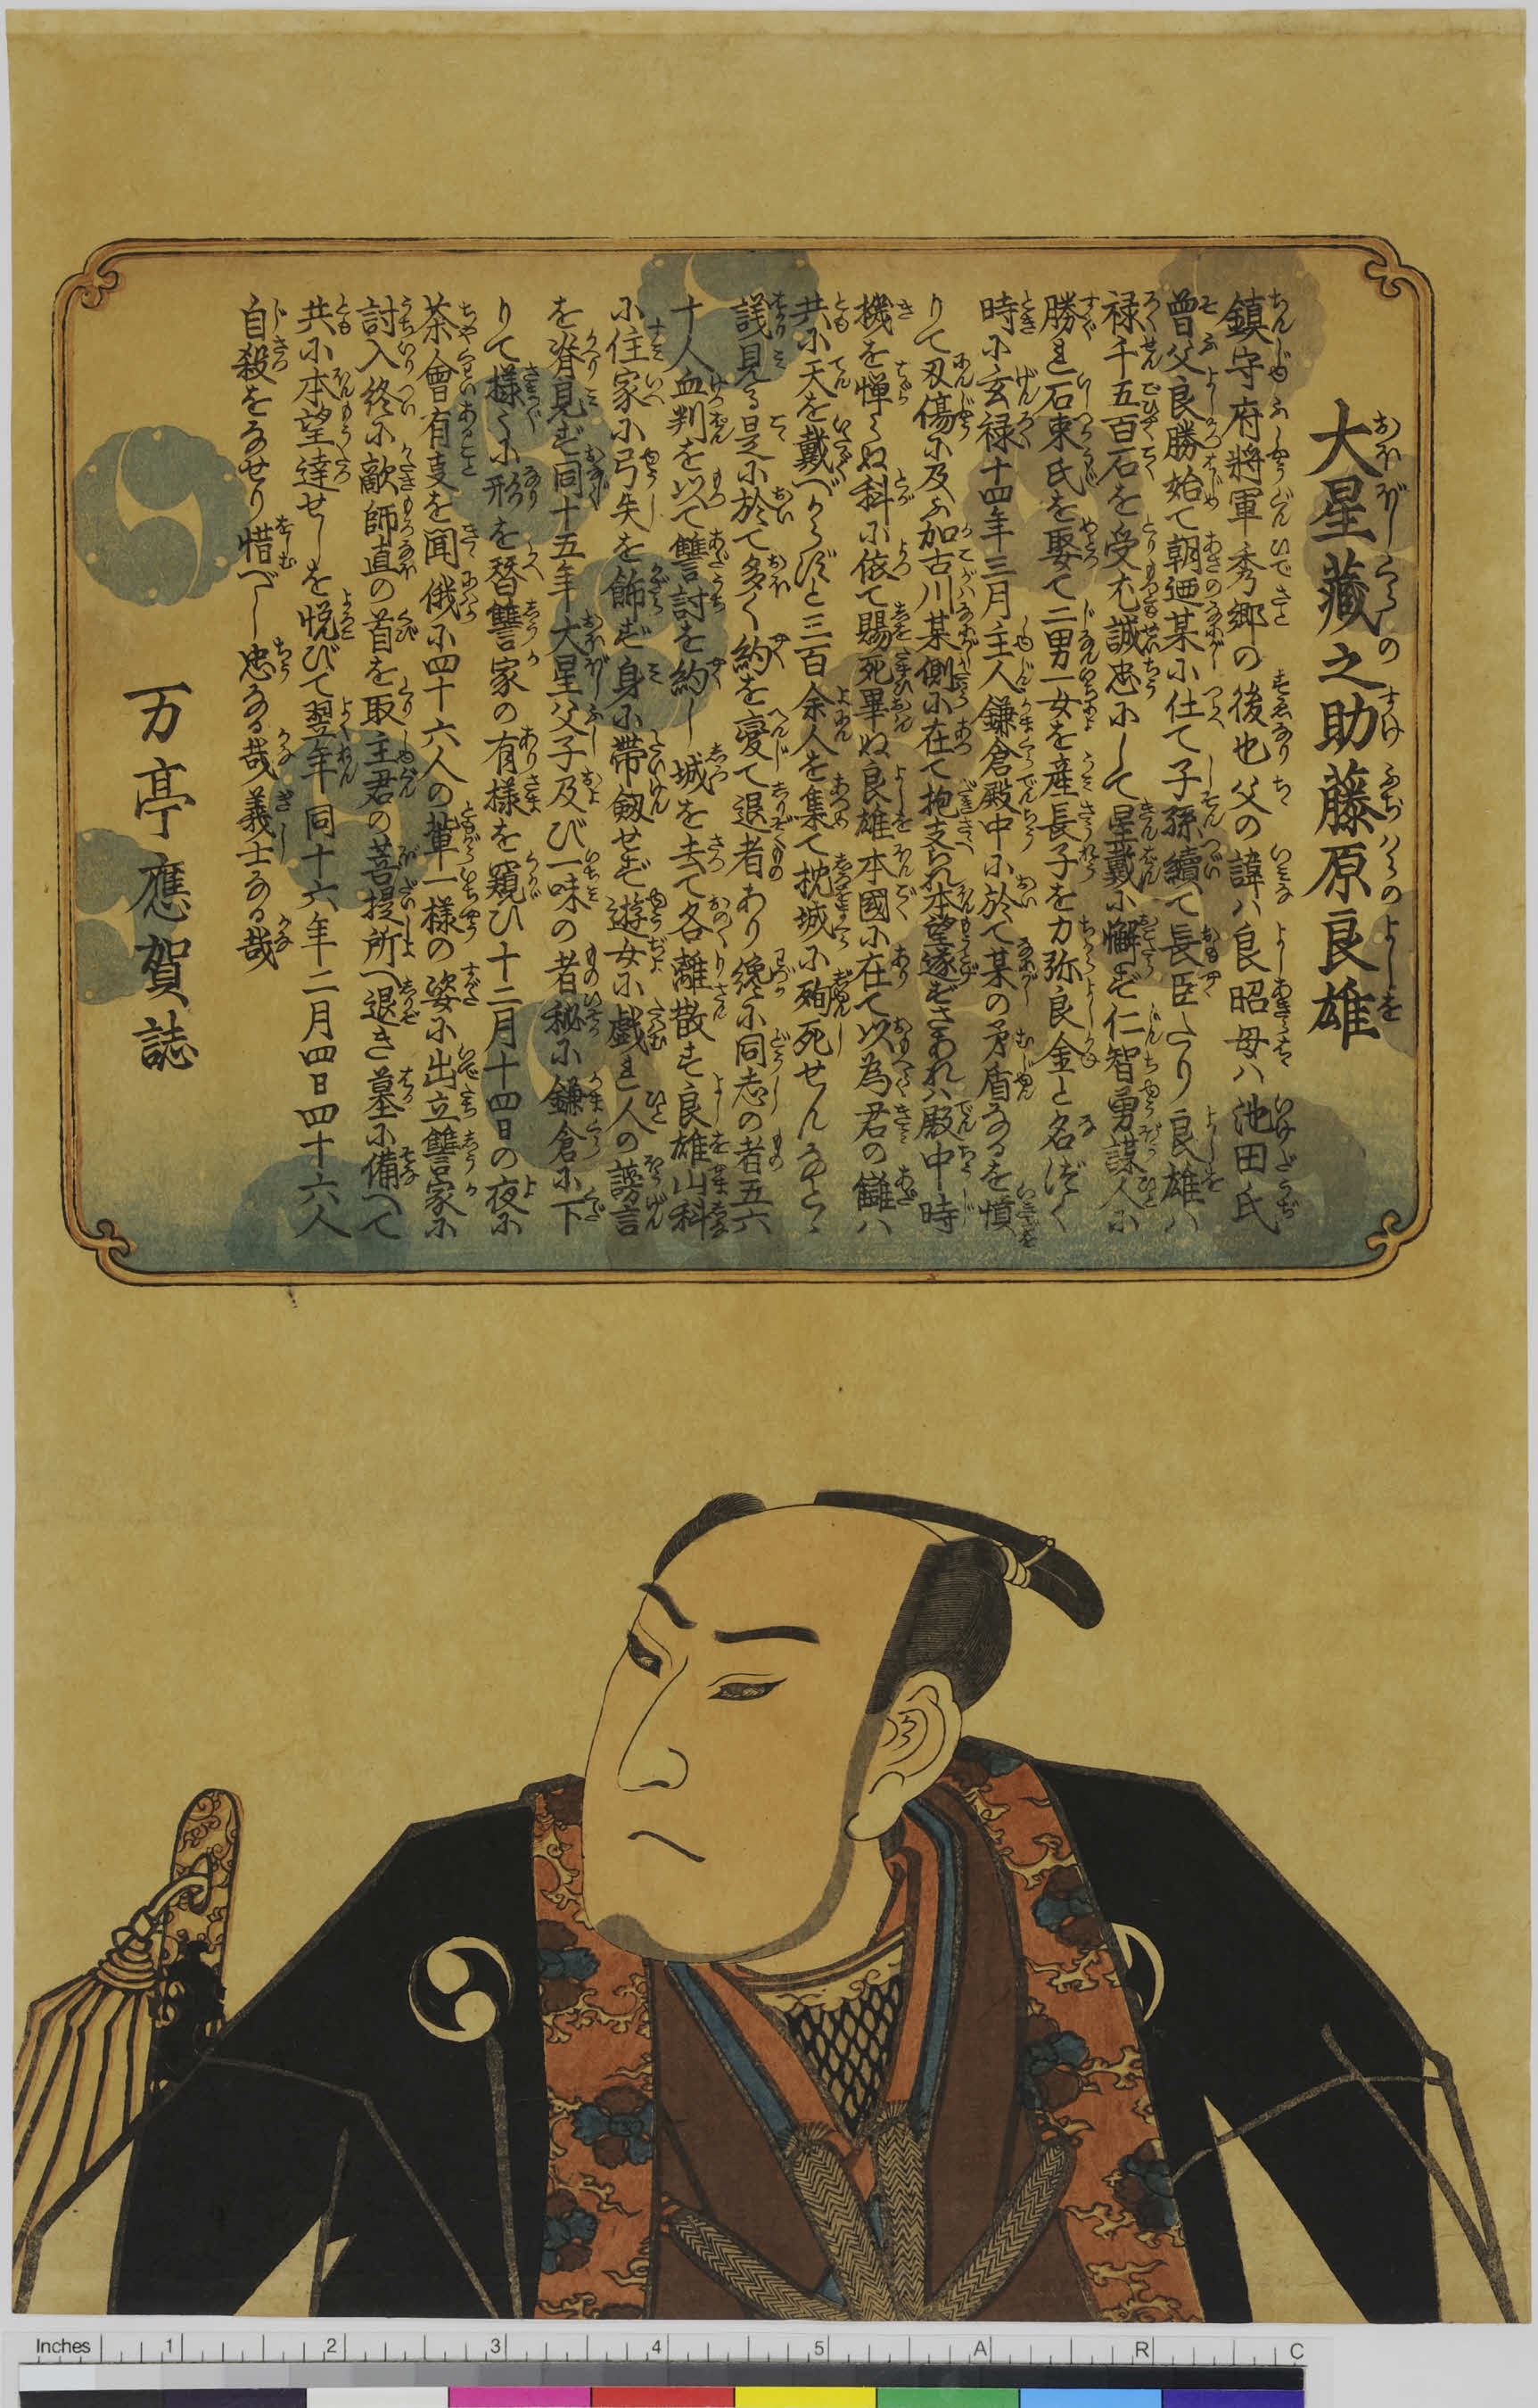 大星藏之助藤原良雄
鎮守府將軍秀郷の後也父の諱ハ良昭母ハ池田氏
曽父良勝始て朝廽某小仕て子孫續て長臣たり良雄ハ
禄千五百石を受尤誠忠小して星戴小懈ず仁智勇謀人小
勝れ石束氏を娶て二男一女を産長子を力弥良金と名づく
時小玄禄十四年三月主人鎌倉殿中小於て某の矛盾なるを憤
りて刄傷小及ふ加古川某側小在て抱支られ本望遂ずさあれハ殿中時
機を憚らぬ科小依て賜死畢ぬ良雄本國小在て以為君の讎ハ
共小天を戴べからずと三百余人を集て枕城小殉死せんなど
議見る是小於て多く約を憂て退者あり纔小同志の者五六
十人血判を以て讐討を約し城を去て各離散す良雄山科
小住家小弓矢を飾ず身小帯劔せず遊女小戯れ人の謗言
を脊見ず同十五年大星父子及び一味の者秘小鎌倉小下
りて様〻小形を替讐家の有様を窺ひ十二月十四日の夜小
茶會有支を聞俄小四十六人の輩一様の姿小出立讐家小
討入終小敵師直の首を取主君の菩提所へ退き墓小備へて
共小本望達せしを悦びて翌年同十六年二月四日四十六人
自殺をなせり惜べし忠なる哉義士なる哉
万亭應賀誌
Inches 1 2 3 4 5 A R C